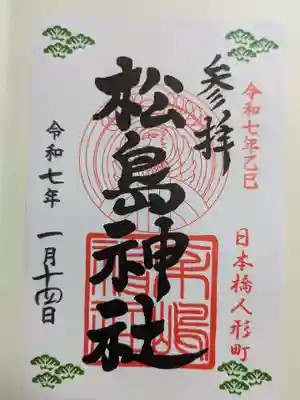 令和七年乙巳
日本橋人形町
参拝
松島神社
令和七年
一月十四日